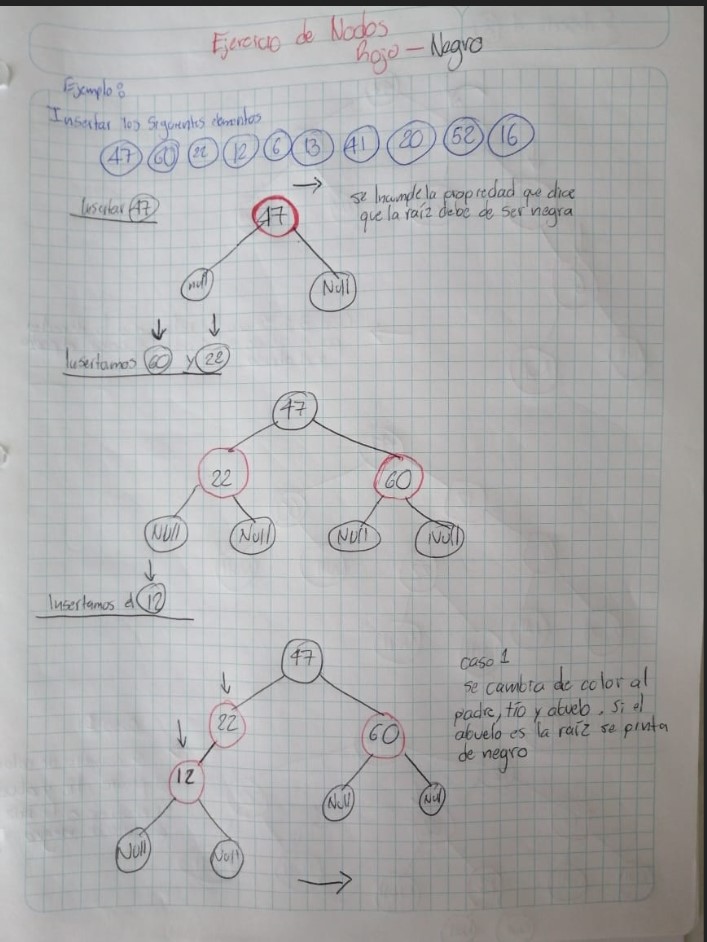 Ejercicio de Nodos
Rojo - Negro
Ejemplo:
Insertar los siguientes elementos
47 60 22 12 6 13 41 20 52 16
Insertar 47
47
se Incumple la propiedad que dice
que la raíz debe de ser negra
null Null
Insertamos 60 y 22
47
22 60
Null Null Null Null
Insertamos el 12
47
caso 1
se cambia de color al
padre, tío y abuelo. Si el
abuelo es la raíz se pinta
de negro
22 60
12
Null Null
Null Null